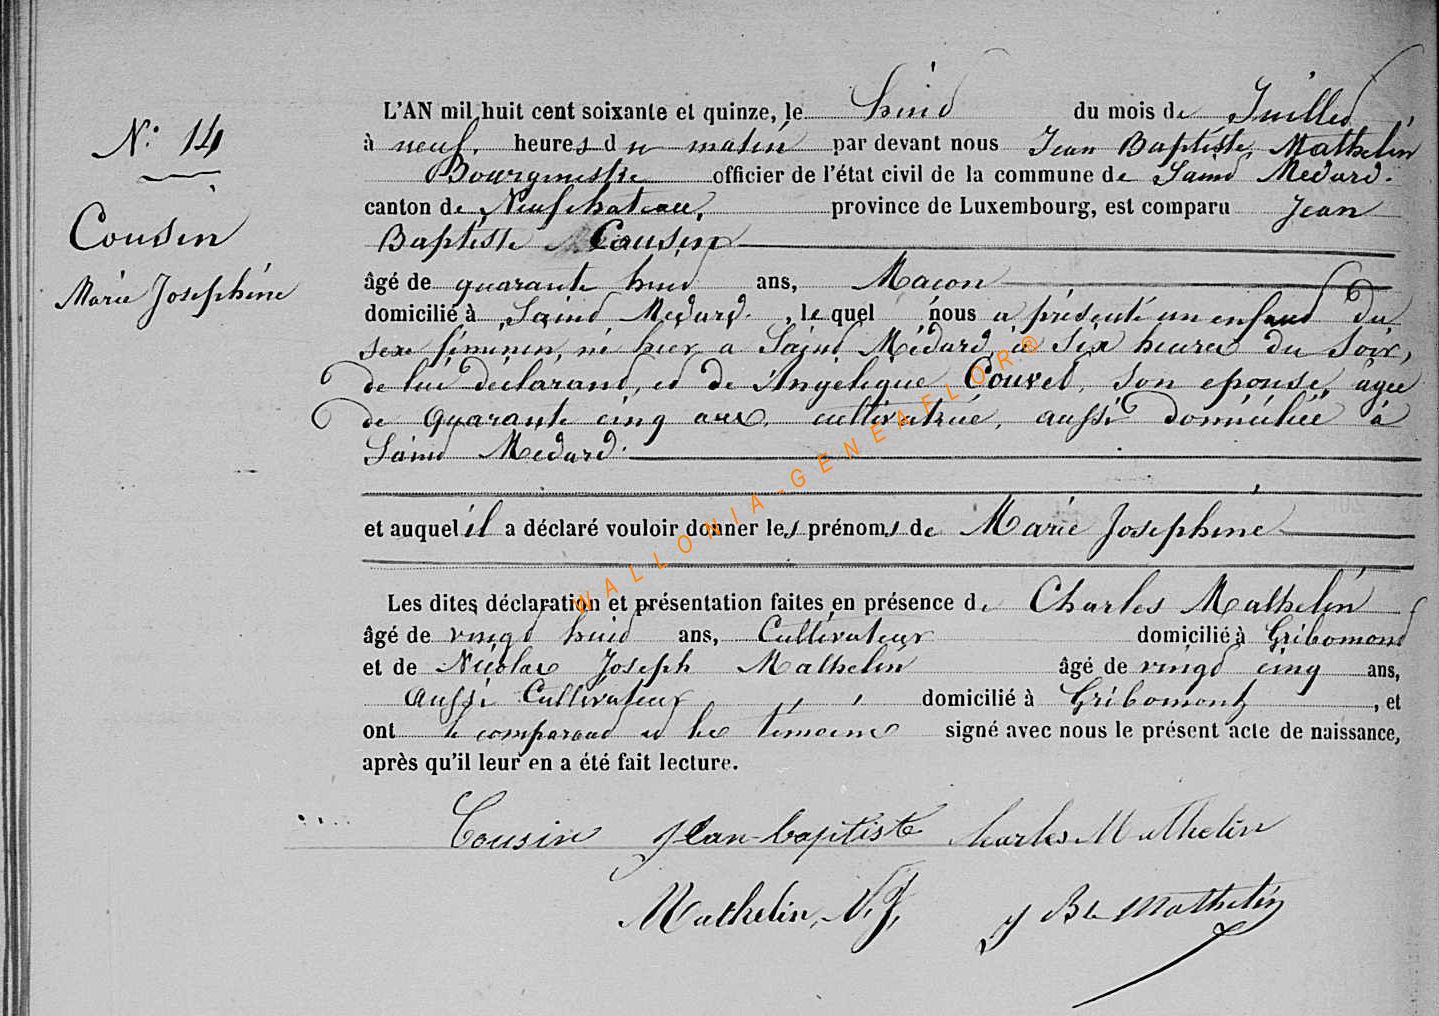 N: 14
Cousin
Marie Joséphine
L'AN mil huit cent soixante et quinze, le huid du mois de Juilled,
à neuf. heures du matin par devant nous Jean Baptiste Mathelin
Bourgmestre officier de l'état civil de la commune de Saind Medard.
canton de Neufchateau, province de Luxembourg, est comparu Jean
Baptiste Cousin
âgé de quarante huid ans, Maçon
domicilié à Saind Medard. , le quel nous a présenté un enfand du
sexe féminin, né hier a Saind Médard, à six heures du soir,
de lui déclarand, ed de Angelique Couvel, son epouse, agée
de quarante cinq ans, cultivatrice, aussi domiciliée à
Saind Medard.
et auquel il a déclaré vouloir donner les prénoms de Marie Joséphine
Les dites déclaration et présentation faites en présence de Charles Mathelin
âgé de vingd huid ans, Cultivateur domicilié à Gribomond
et de Nicolas Joseph Mathelin âgé de vingd cinq ans,
aussi Cultivateur domicilié à Gribomont , et
ont le comparand ed les témoins signé avec nous le présent acte de naissance,
après qu'il leur en a été fait lecture.
Cousin Jean-baptiste Charles Mathelin
Mathelin, N. J, J Bte Mathelin
WALLONIA-GENEAFLOR®